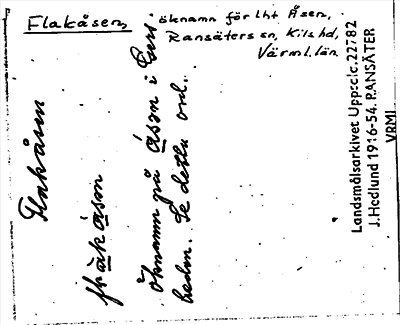 Flakåsen, öknamn för lht Åsen,
Ransäters sn, Kils hd,
Värml. län
Flakåsen
flɑ̀kåsm
Öknamn på åsm i
heden. Se detta ord.
Landsmålsarkivet Upps: c. 22782
J. Hedlund 1916-54. RANSÄTER
VRML